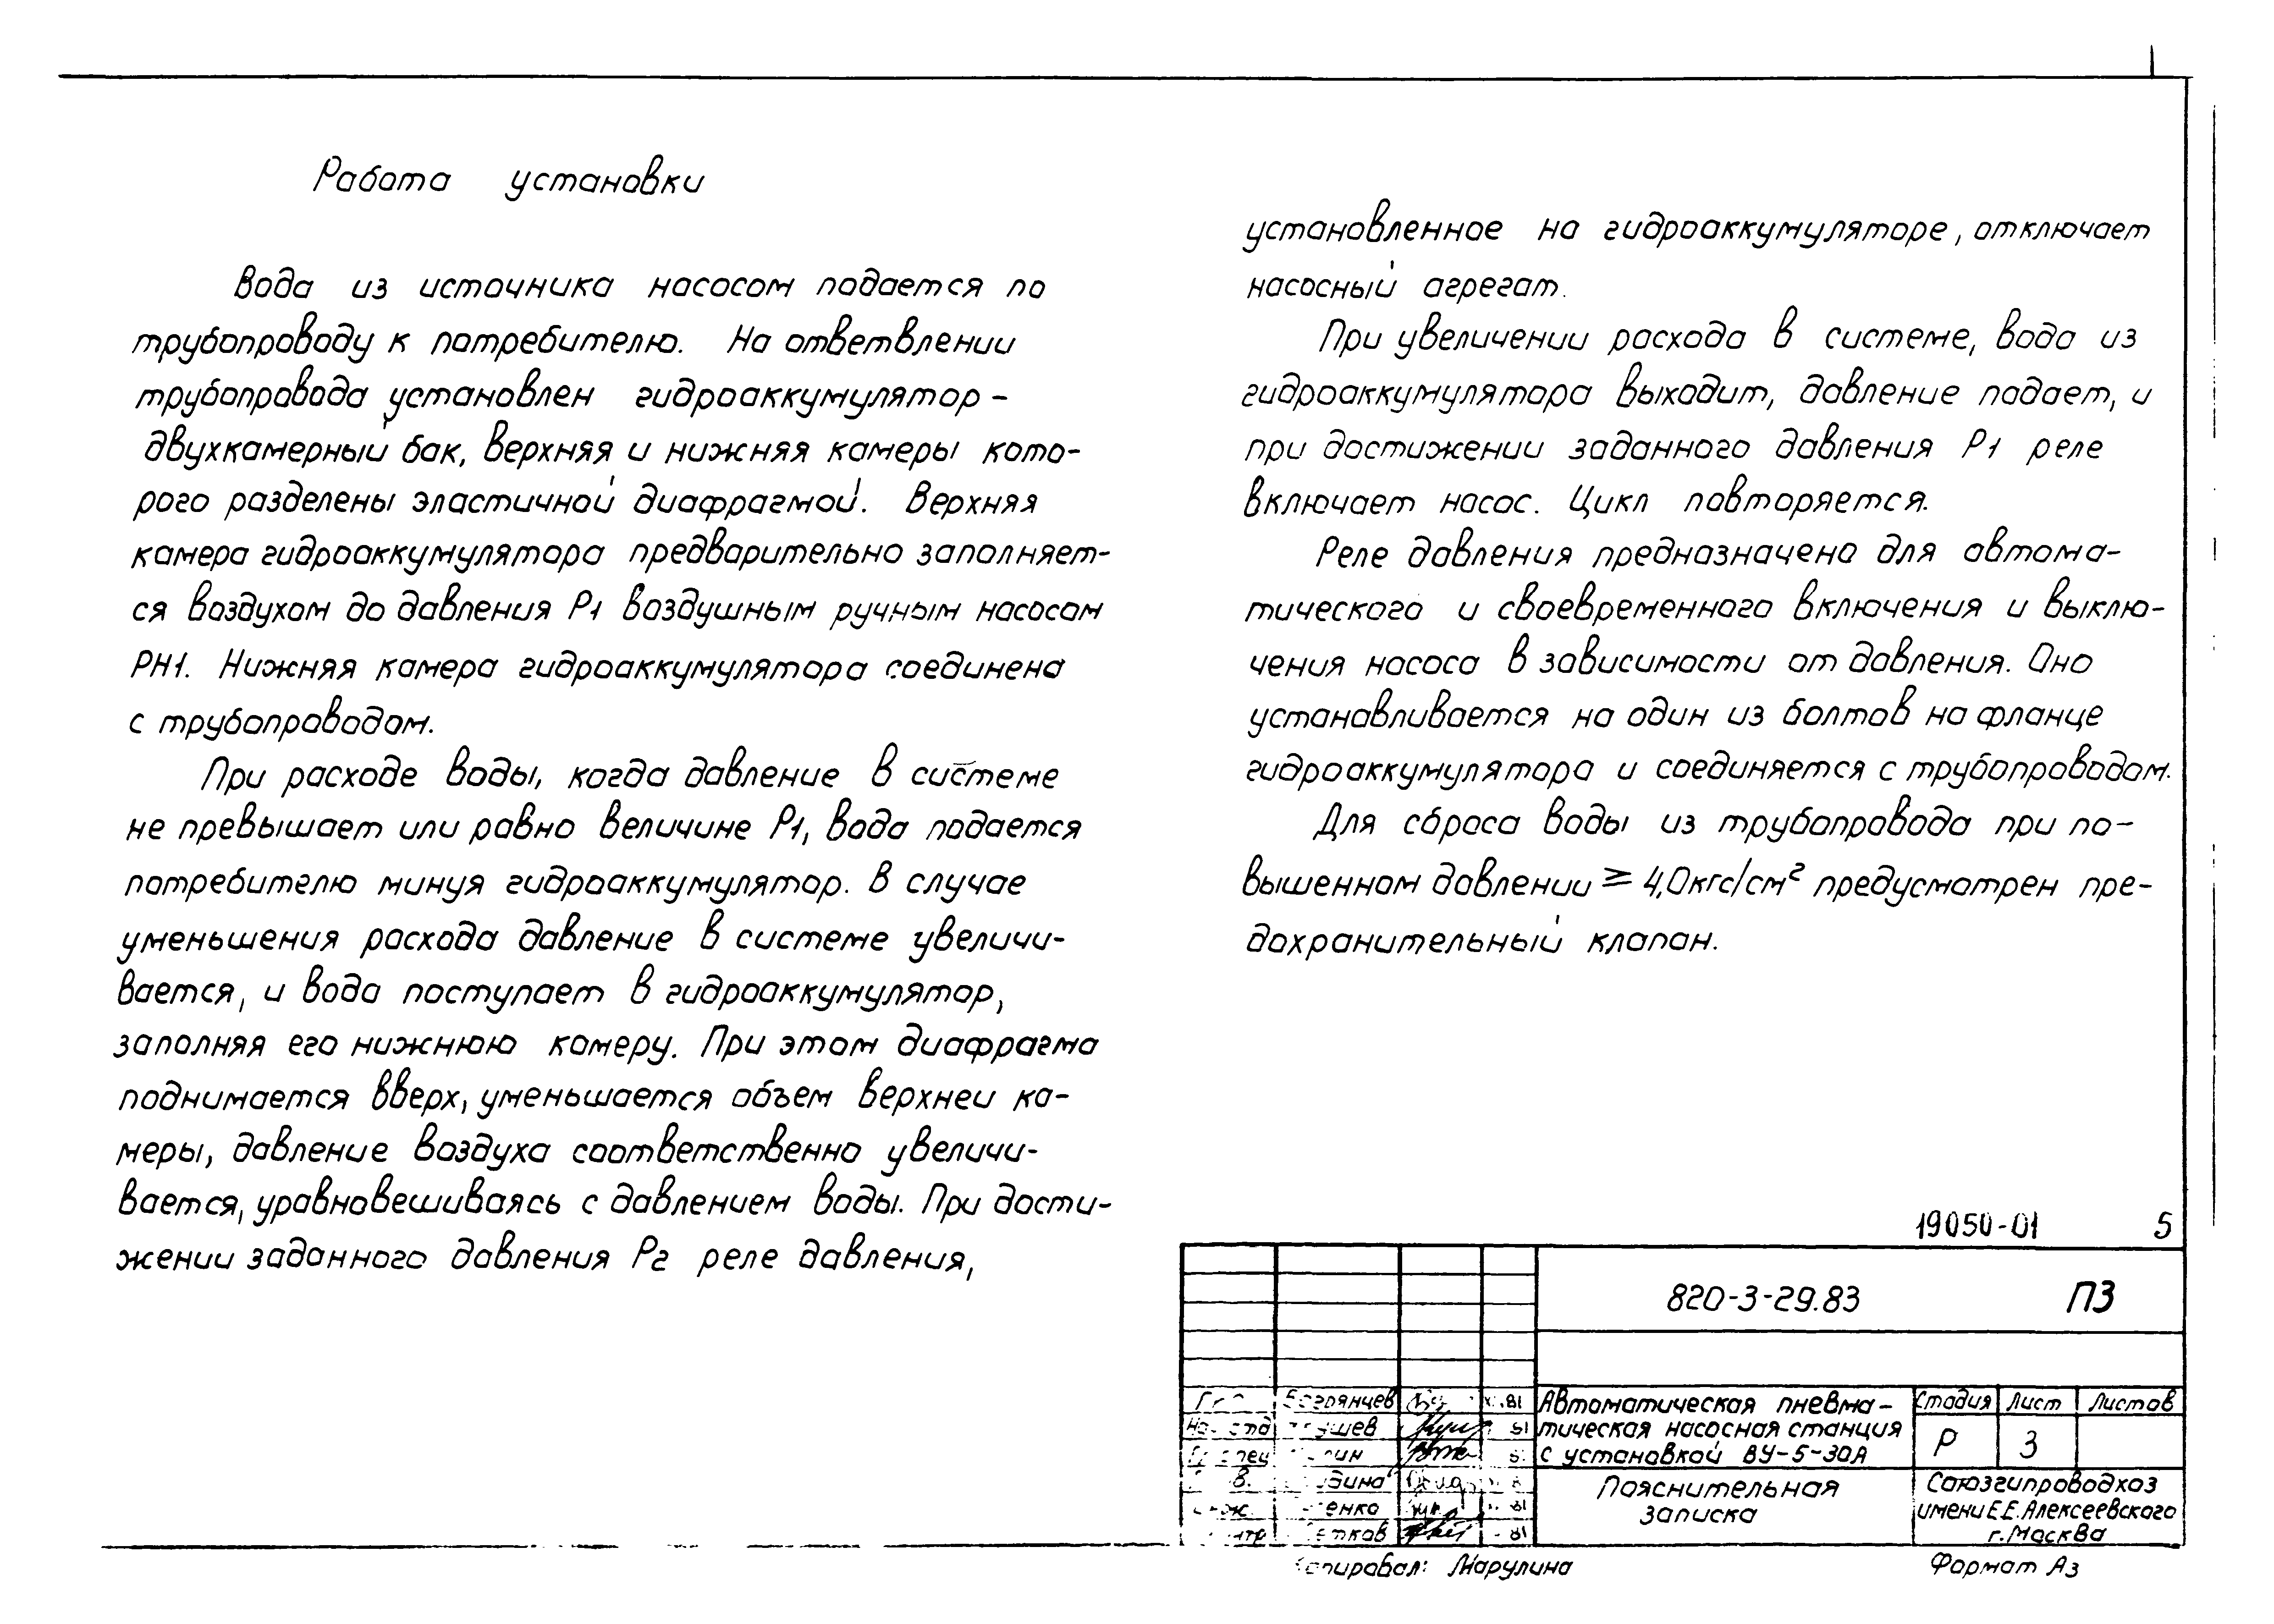 Работа установки
Вода из источника насосом подается по
трубопроводу к потребителю. На ответвлении
трубопровода установлен гидроаккумулятор -
двухкамерный бак, верхняя и нижняя камеры кото-
рого разделены эластичной диафрагмой. Верхняя
камера гидроаккумулятора предварительно заполняет-
ся воздухом до давления Р1 воздушным ручным насосом
РН1. Нижняя камера гидроаккумулятора соединена
с трубопроводом.
При расходе воды, когда давление в системе
не превышает или равно величине Р1, вода подается
потребителю минуя гидроаккумулятор. В случае
уменьшения расхода давление в системе увеличи-
вается, и вода поступает в гидроаккумулятор,
заполняя его нижнюю камеру. При этом диафрагма
поднимается вверх, уменьшается объем верхней ка-
меры, давление воздуха соответственно увеличи-
вается, уравновешиваясь с давлением воды. При дости-
жении заданного давления Р2 реле давления,
установленное на гидроаккумуляторе, отключает
насосный агрегат.
При увеличении расхода в системе, вода из
гидроаккумулятора выходит, давление падает, и
при достижении заданного давления Р1 реле
включает насос. Цикл повторяется.
Реле давления предназначено для автома-
тического и своевременного включения и выклю-
чения насоса в зависимости от давления. Оно
устанавливается на один из болтов на фланце
гидроаккумулятора и соединяется с трубопроводом.
Для сброса воды из трубопровода при по-
вышенном давлении ≥ 4,0кгс/см² предусмотрен пре-
дохранительный клапан.
19050-01 5
820-3-29.83 ПЗ
Автоматическая пневма-
тическая насосная станция
с установкой ВУ-5-30А
Стадия Лист Листов
Р 3
Пояснительная
записка
Союзгипроводхоз
имени Е.Е.Алексеевского
г.Москва
Копировал: Марулина
Формат А3